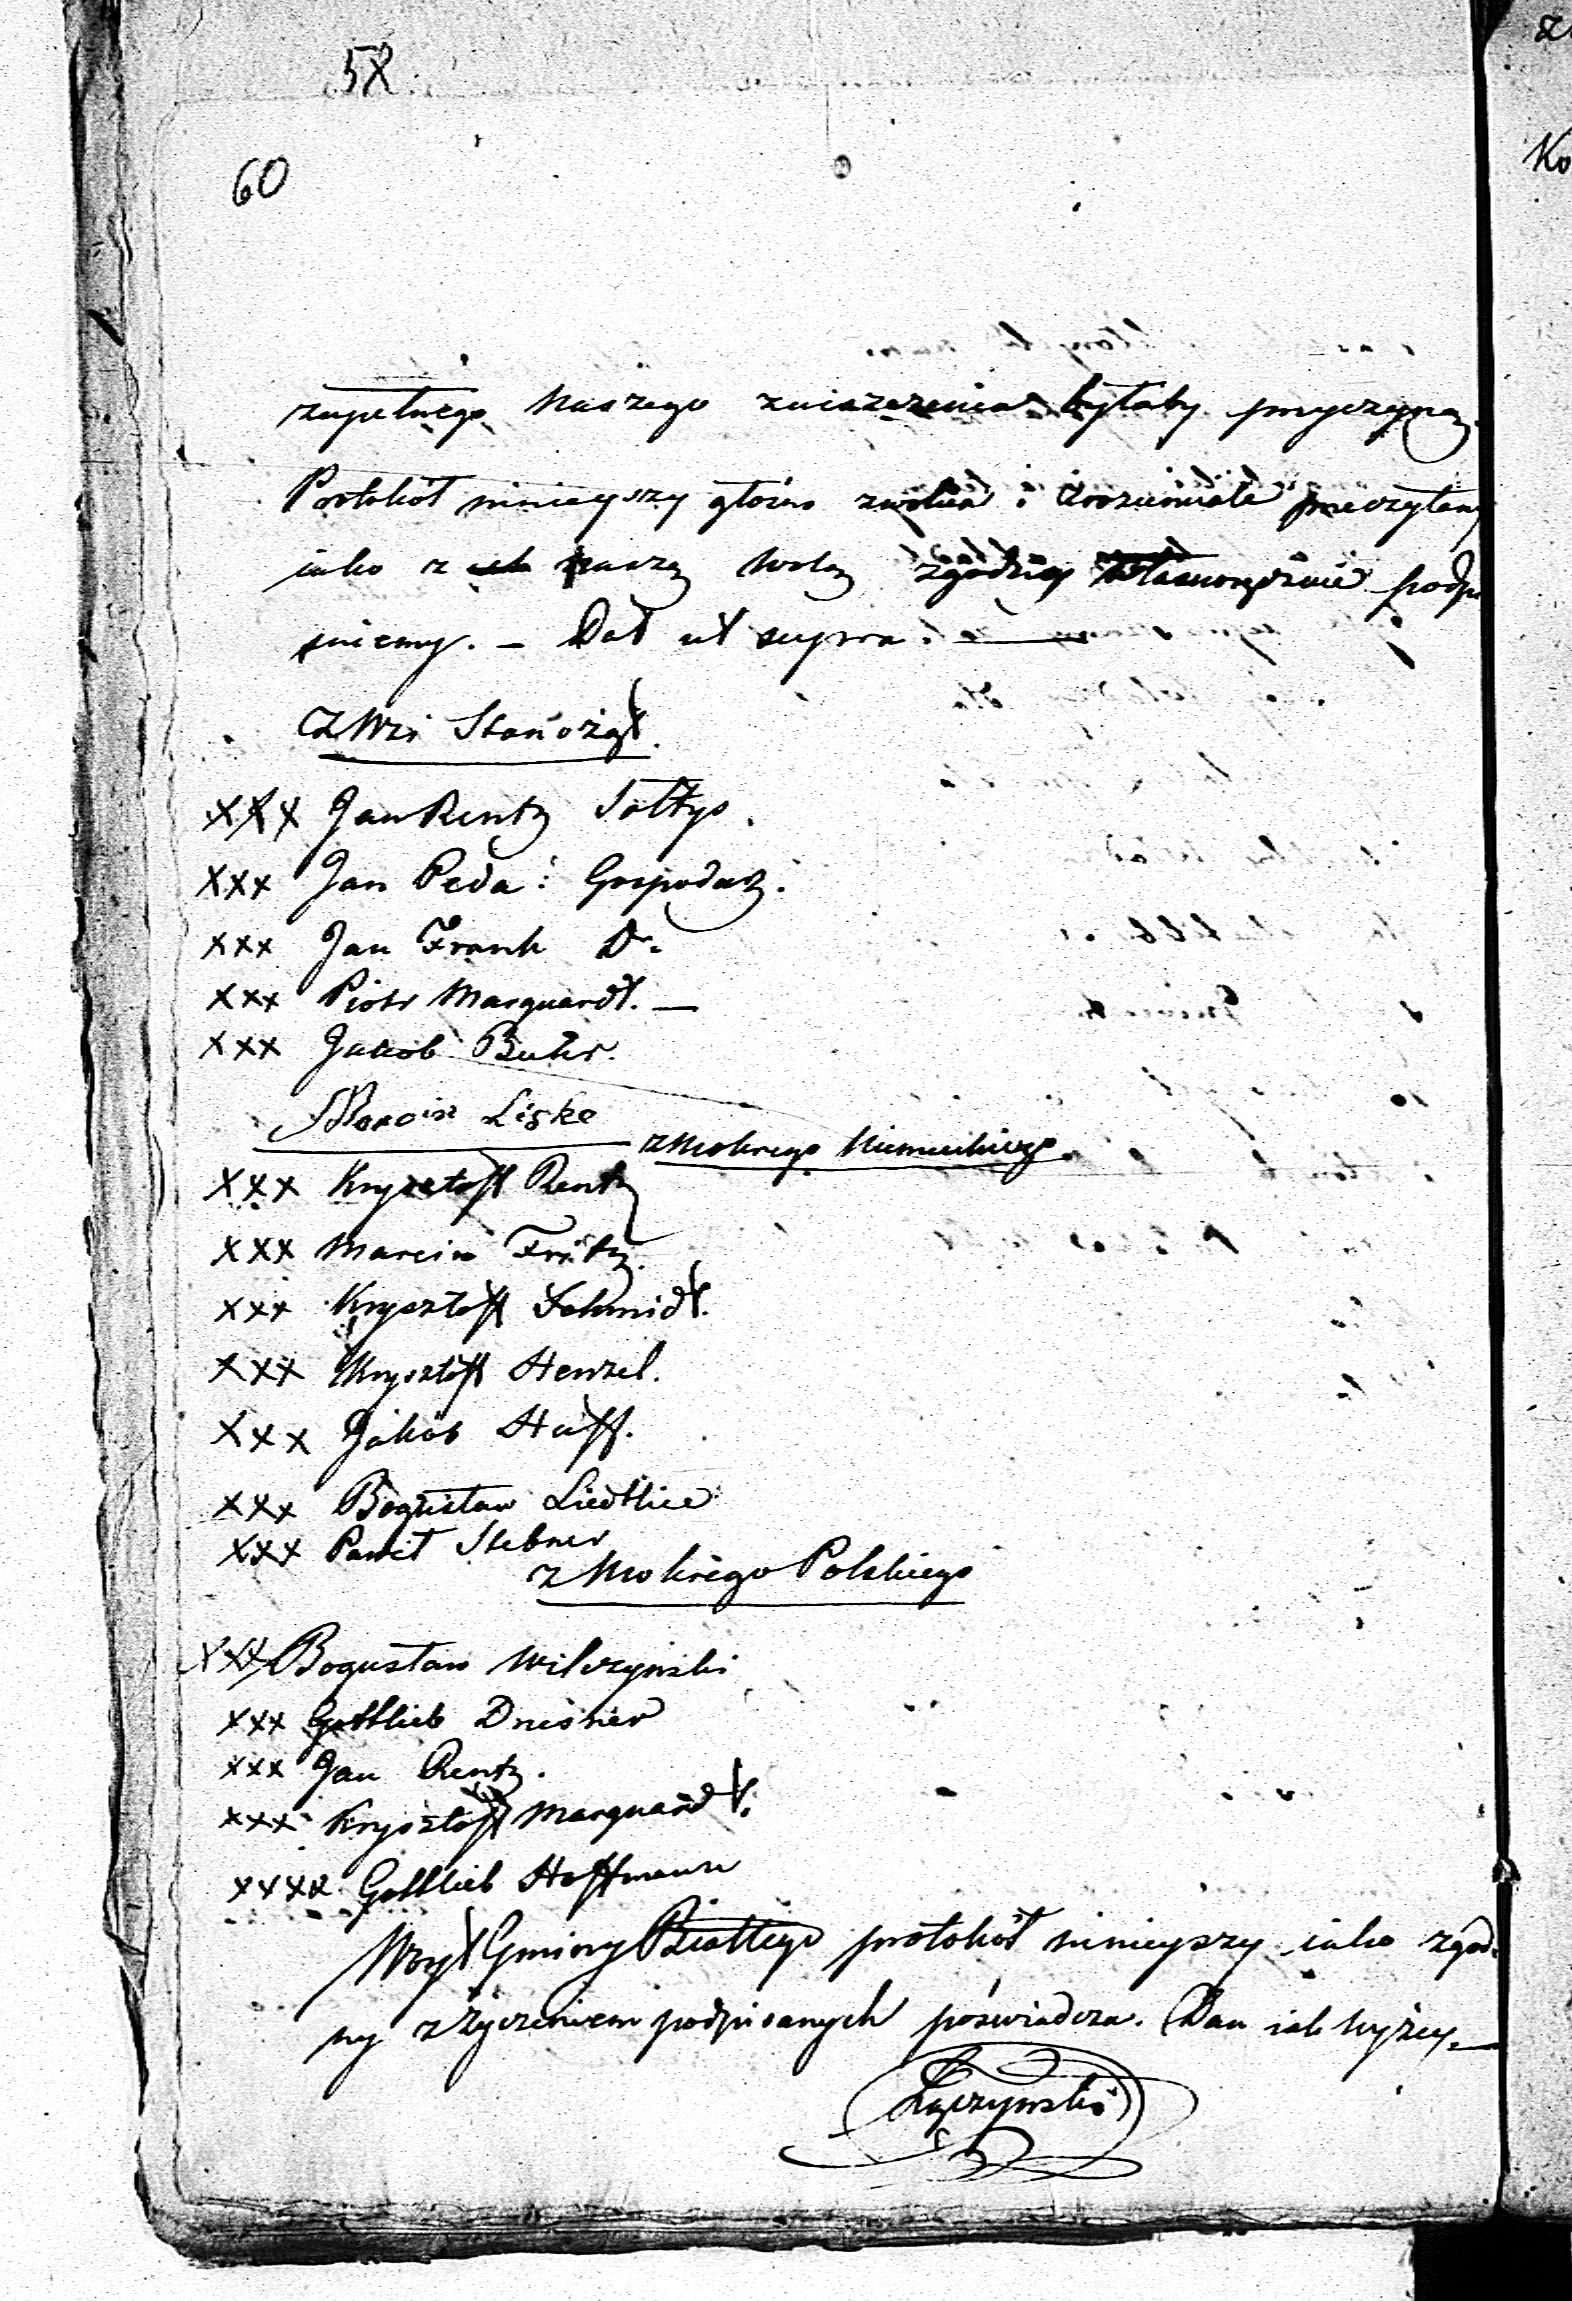 58
60
zupełnego naszego zniszczenia byłaby przyczyną.
Protokół ninieyszy głośno zwolna i zrozumiale przeczytany
iako z naszą wolą zgodny własnoręcznie podpi
suiemy. – Dat ut supra. –
Z Wsi Stanożąt.
XXX Jan Rentz Sołtys.
XXX Jan Peda: Gospodarz.
XXX Jan Frank D°.
XXX Piotr Marquardt. –
XXX Jakob Buhr.
Marcin Liske
z Mokrego Niemieckiego
XXX Krysztoff Rentz
XXX Marcin Fritz.
XXX Krysztoff Schmidt.
XXX Krysztoff Henzel.
XXX Jakób Huff.
XXX Bogusław Liedtke
XXX Paweł Stebner
z Mokrego Polskiego
XXX Bogusław Wilczyński
XXX Gottlieb Dresner
XXX Jan Rentz.
XXX Krysztoff Marquardt.
XXXX Gottlieb Hoffmann
Woyt Gminy protokół ninieyszy iako zgod
ny z życzeniem podpisanych poświadcza. Dan iak wyżey. –
Łączyński